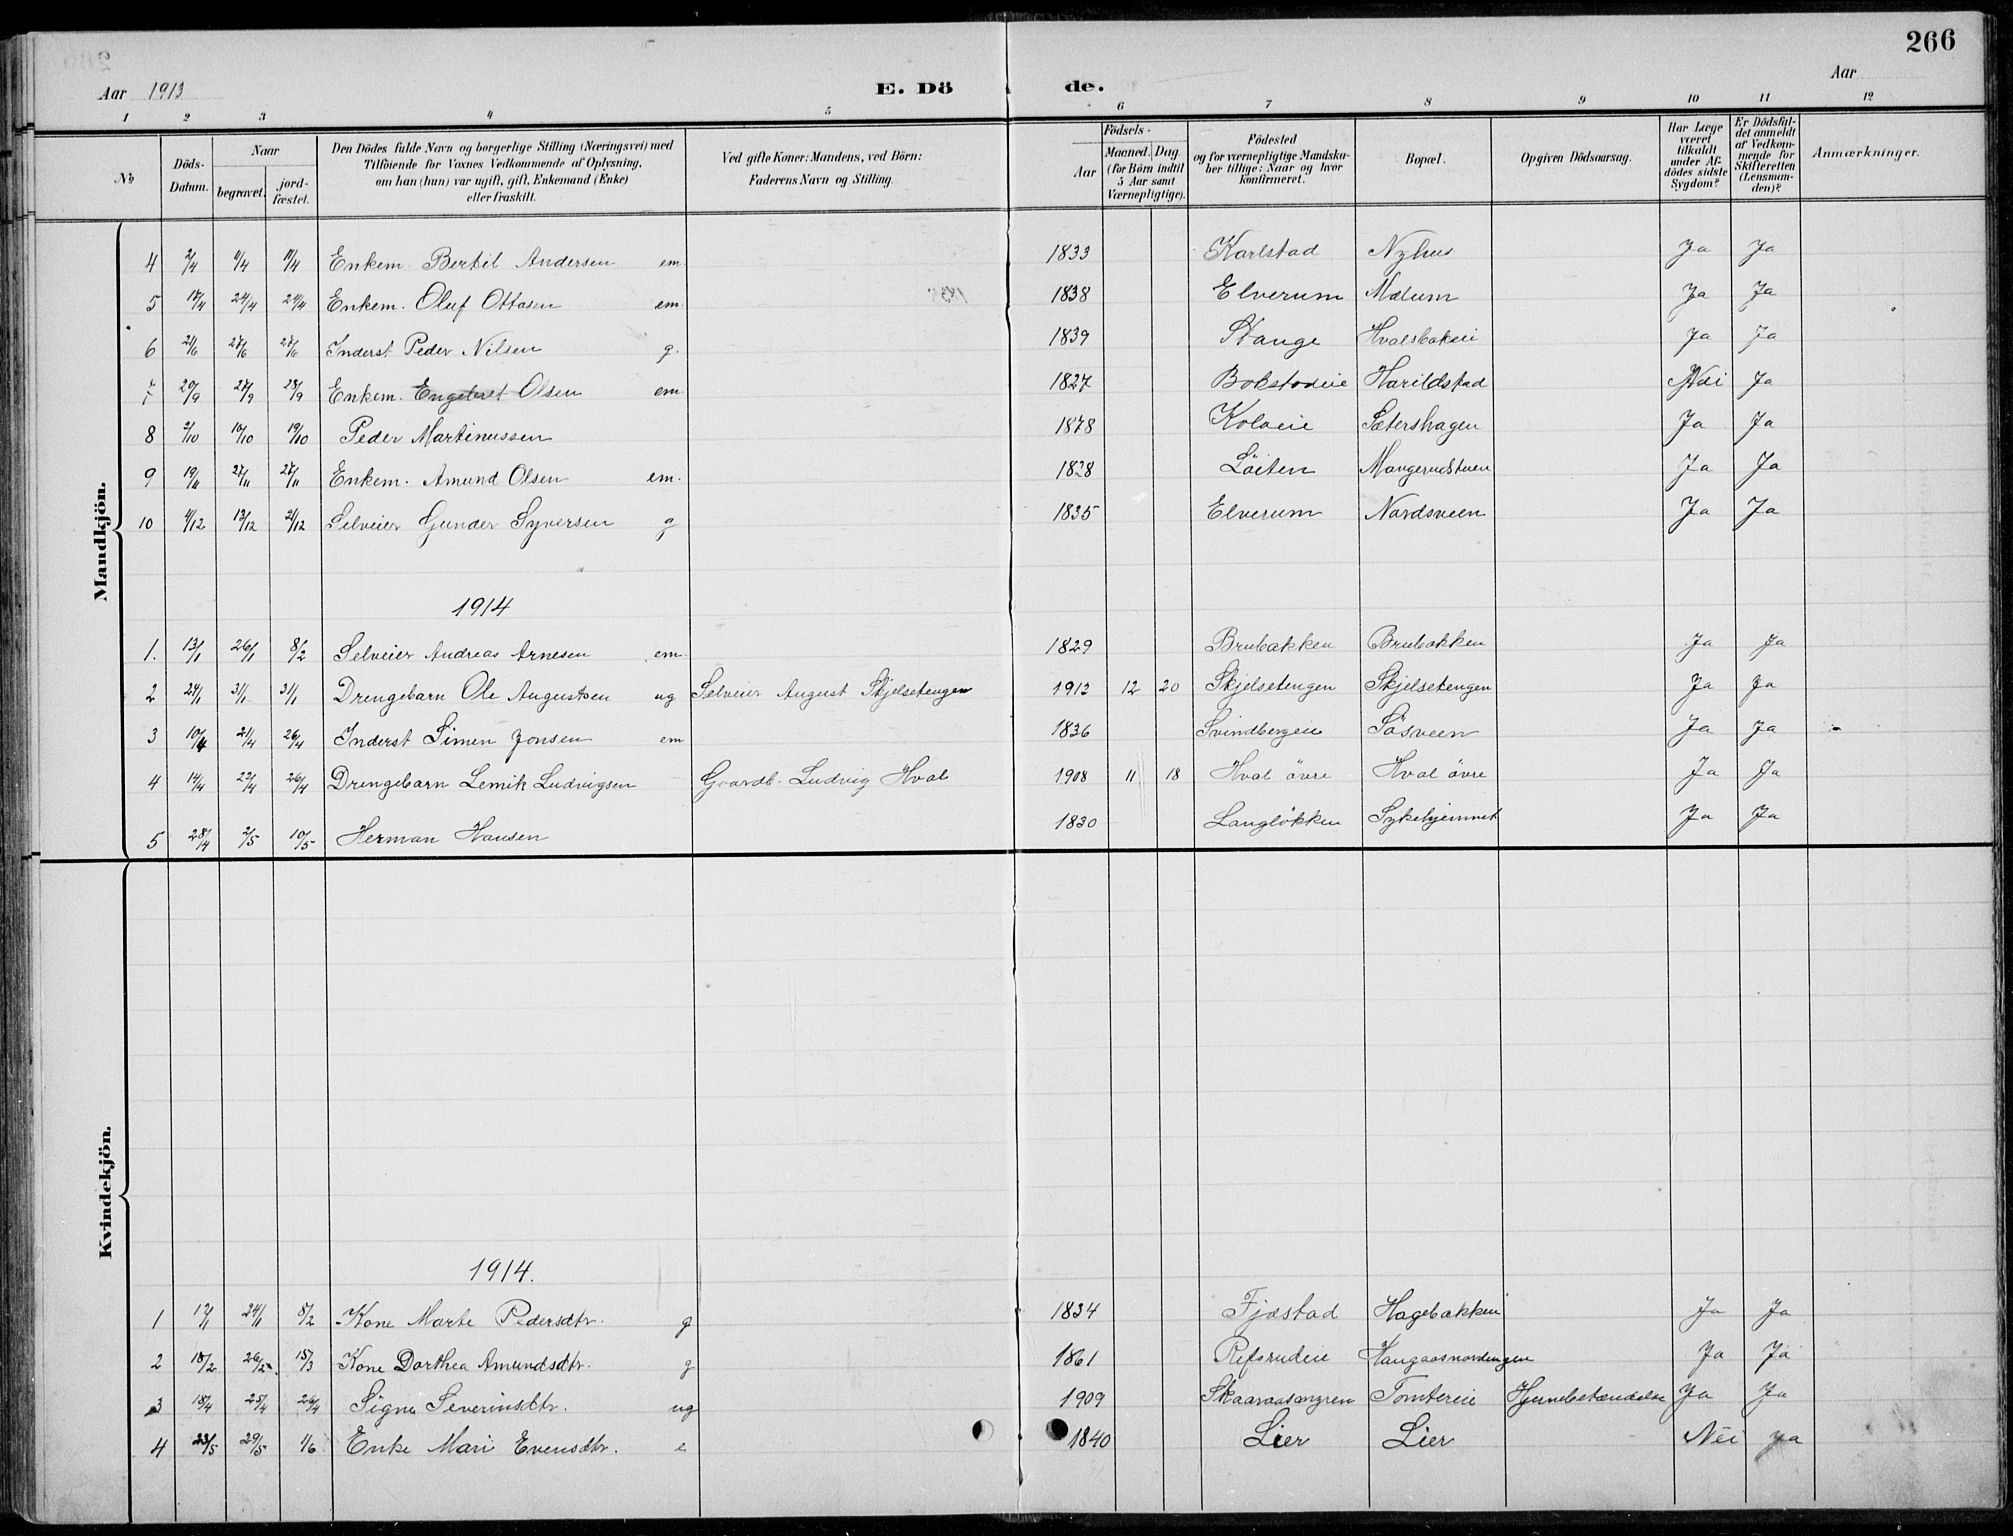 266
Aar 1913 E. Dö de. Aar
1 2 3 4 5 6 7 8 9 10 11 12
No Döds-Datum. Naar begravet. jord-fæstet. Den Dödes fulde Navn og borgerlige Stilling (Næringsvei) med Tilföiende for Voxnes Vedkommende af Oplysning, om han (hun) var ugift, gift, Enkemand (Enke) eller fraskilt. Ved gifte Koner: Mandens, ved Börn: Faderens Navn og Stilling. Födsels- Aar Maaned. Dag (for Börn indtil 5 Aar samt Værnepligtige). Födested og for værnepligtige Mandska-ber tillige: Naar og hvor konfirmeret. Bopæl. Opgiven Dödsaarsag. Har Læge været tilkaldt under Af-dödes sidste Sygdom? Er Dödsfal-det anmeldt af Vedkom-mende for Skifteretten (Lensman-den)? Anmærkninger.
Mandkjön.
4 2/4 11/4 11/4 Enkem. Bertil Andersen em. 1833 Karlstad Nyhus Ja Ja
5 17/4 24/4 24/4 Enkem. Oluf Ottosen em. 1838 Elverum Mælum Ja Ja
6 21/6 27/6 27/6 Inderst Peder Nilsen g. 1839 Stange Hvalsbakeie Ja Ja
7 20/9 27/9 28/9 Enkem. Engebret Olsen em. 1827 Bokstadeie Harildstad Nei Ja
8 2/10 10/10 19/10 Peder Martinussen 1878 Kolveie Sætershagen Ja Ja
9 19/11 27/11 27/11 Enkem. Amund Olsen em. 1828 Löiten Mangerudstuen Ja Ja
10 4/12 13/12 21/12 Selveier Gunder Syversen g 1835 Elverum Nordsveen Ja Ja
1914
1. 13/1 26/1 8/2 Selveier Andreas Arnesen em. 1829 Brubakken Brubakken Ja Ja
2 24/1 31/1 31/1 Drengebarn Ole Augustsen ug Selveier August Skjelsetengen 1913 12 20 Skjelsetengen Skjelsetengen Ja Ja
3 10/4 21/4 26/4 Inderst Simen Jonsen em 1836 Svindbergeie Sösveen Ja Ja
4 14/4 22/4 26/4 Drengebarn Lemik Ludvigsen Gaardb. Ludvig Hval 1908 11 18 Hval övre Hval övre Ja Ja
5 28/4 2/5 10/5 Herman Hansen 1830 Banglökken Sykehjemmet Ja Ja
Kvindekjön.
1914.
1 12/1 24/1 8/2 Kone Marte Pedersdtr. g 1834 Fjæstad Hagebakken Ja Ja
2 18/2 26/2 15/3 Kone Dorthea Amundsdtr. g 1861 Refsrudeie Haugaasnordengen Ja Ja
3 18/4 25/4 26/4 Signe Severinsdtr. ug 1909 Tomtereie Hjernebetændelse Ja Ja
4 23/5 29/5 1/6 Enke Mari Evensdtr. e 1840 Lier Lier Nei Ja